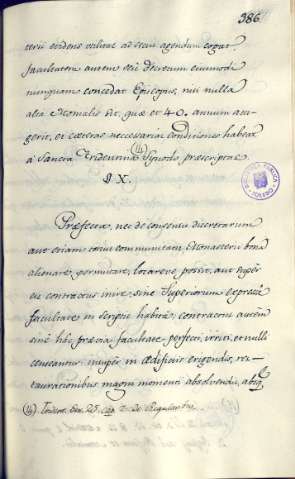 386
terii evidens utilitas ad secus agendum cogat.
facultatem autem seu decretum eiusmodi
nunquam concedat Episcopus, nisi nulla
alia Monialis sit, quæ et 40. annum age-
gerit, et cæteras necessarias conditiones habeat
a Sancta Tridentina Synodo, præscriptas.
(14)
§ X.
Præfecta, nec de consensu discretarum
aut etiam totius communitatis Monasterii bona
alienare, permutare, locareve possit, aut super
eis contractus inire, sine Superiorum expressa
facultate in scriptis habita: contractus autem
sine hac præcia facultate perfecti, irriti, et nulli
censeantur: insuper in ædificiis erigendis, res-
taurationibus magni momenti absolvendis, absq
(14) Trident. Ses. 25. cap. 7. de Regularibus.
BIBLIOTECA PUBLICA
TOLEDO